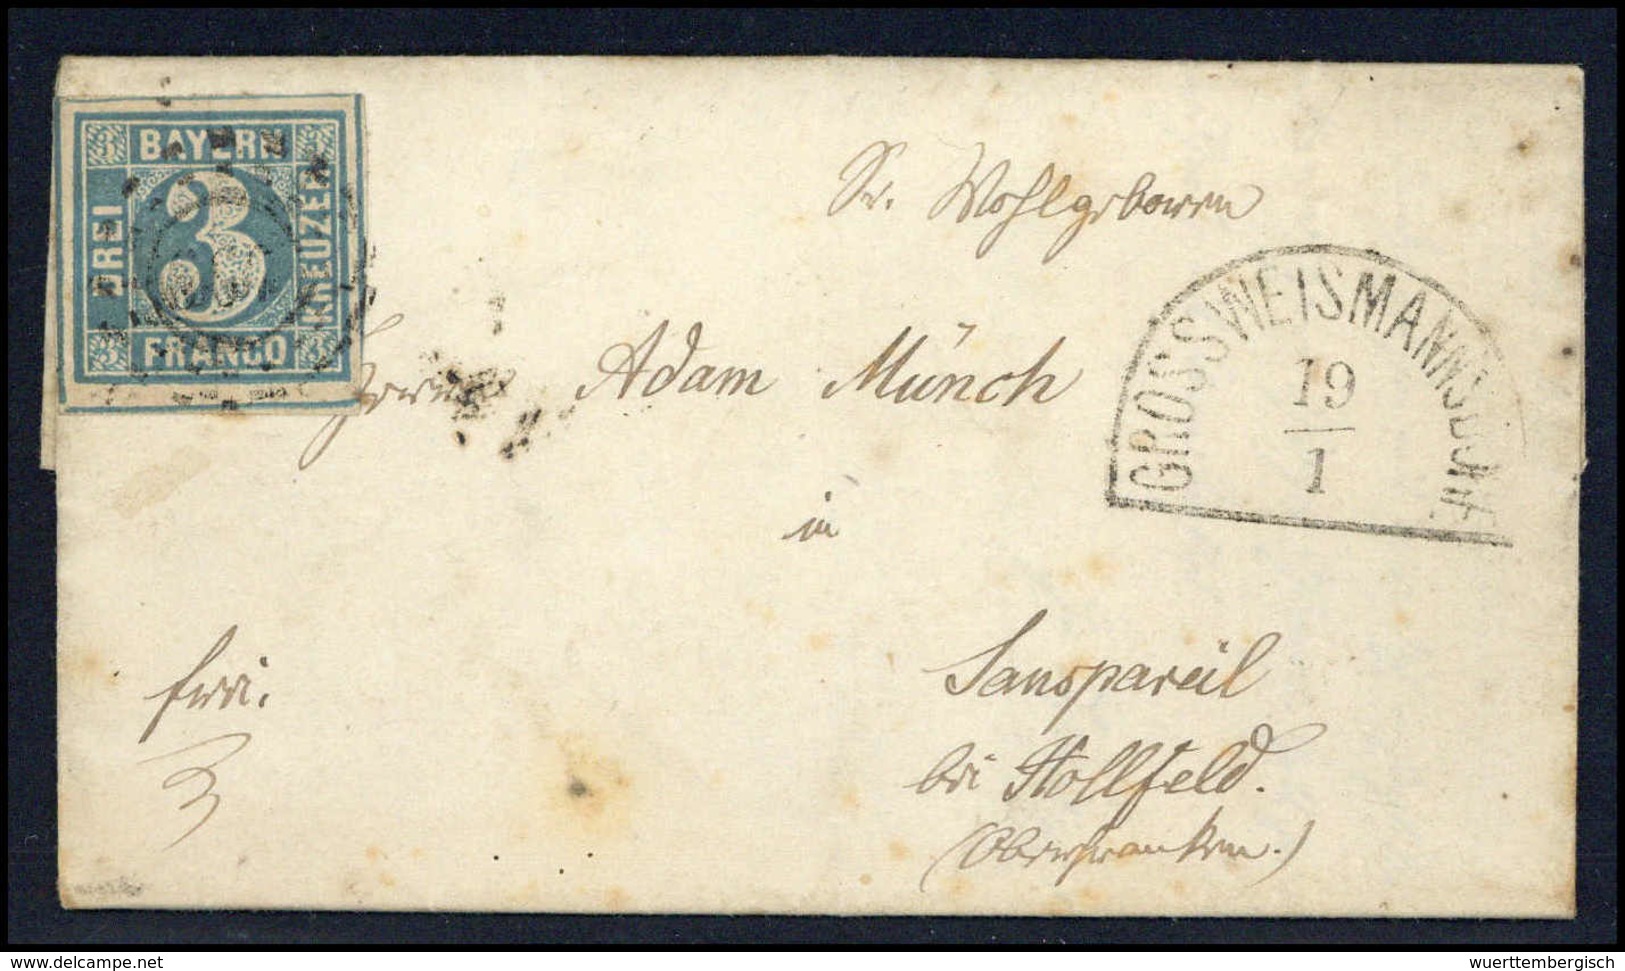 3 BAYERN 3
DREI
3
KREUZER
3 FRANCO 3
Sr. Wohlgeboren
GROSSWEISMANNSDORF
19
1
Herrn Adam Münch
in
frei.
3
Sanspareil
bei Hollfeld.
(Oberfranken.)
www.delcampe.net
wuerttembergisch